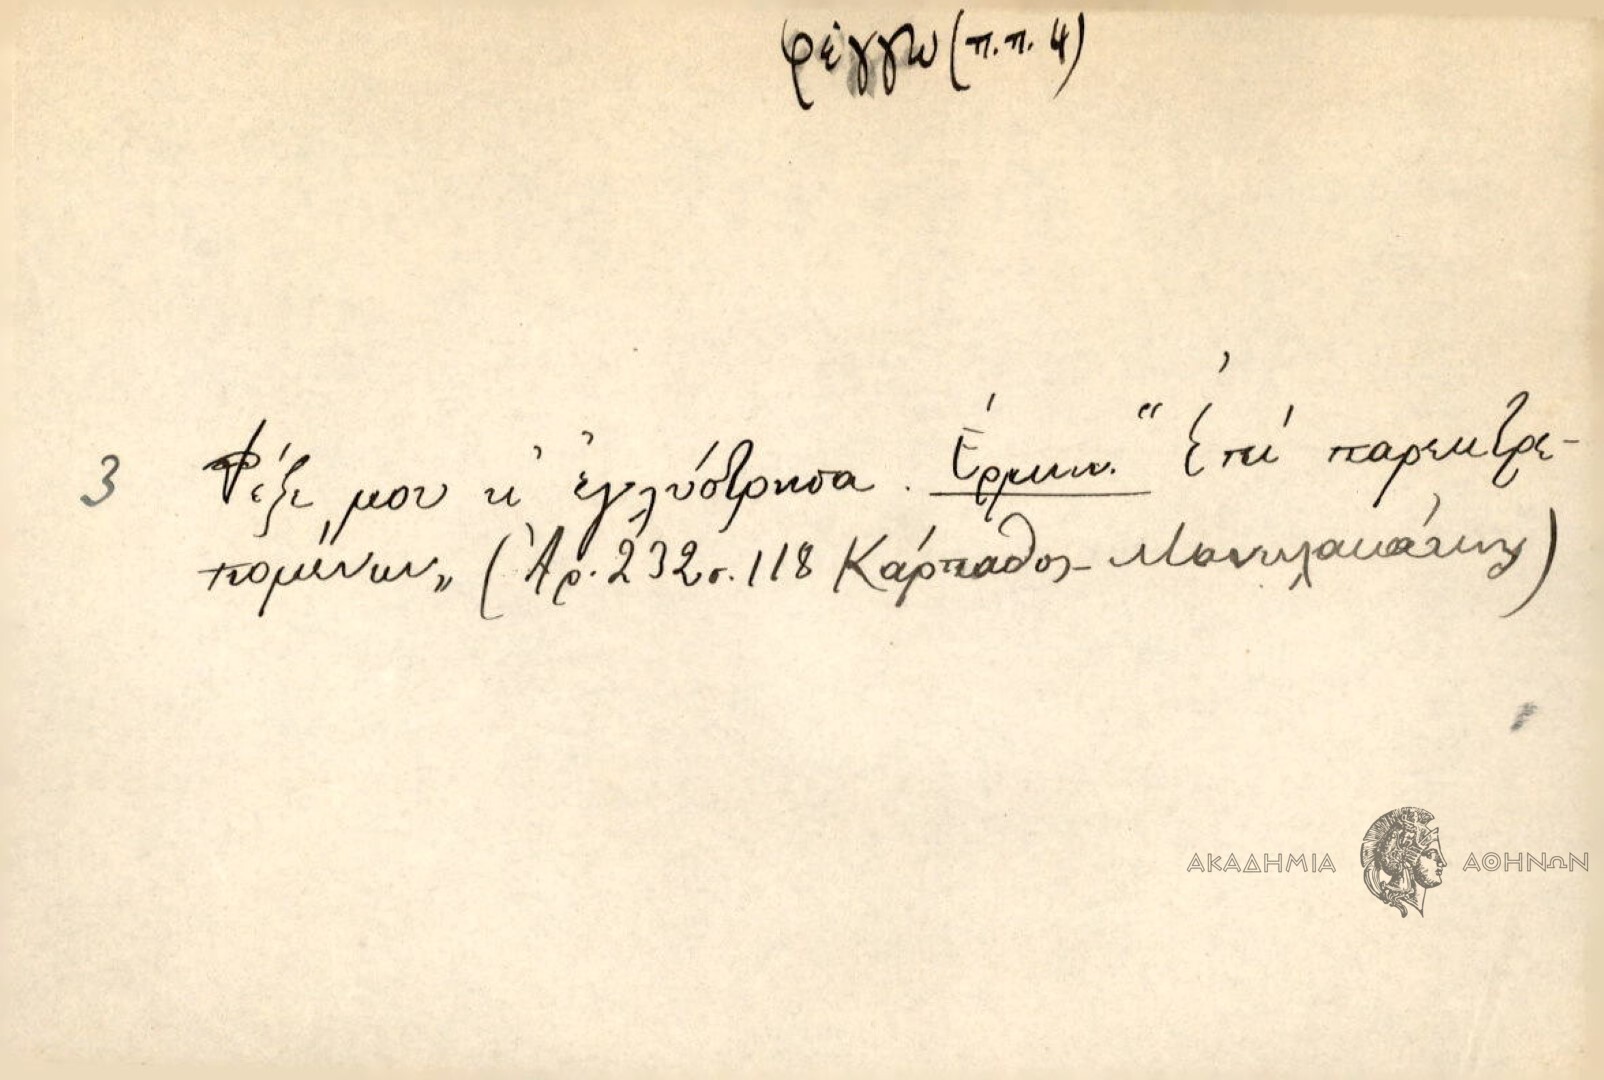 φέγγω (π.π. 4)
3 Φέξε μου κ' ἐγλύστρησα. Ἑρμην. "Ἐπί παρεκτρε-
πομένων„ (Ἀρ. 232 σ. 118 Κάρπαθος - Μανωλακάκης)
ΑΚΑΔΗΜΙΑ ΑΘΗΝΩΝ